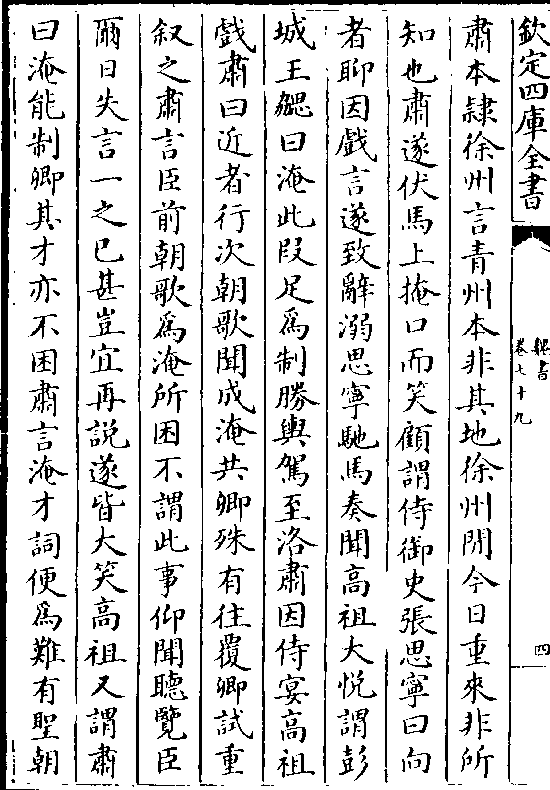 欽定四庫全書
魏書
卷七十九
四
肅本隸徐州言青州本非其地徐州閒今日重來非所
知也肅遂伏馬上掩口而笑顧謂侍御史張思寧曰向
者聊因戲言遂致辭溺思寧馳馬奏聞高祖大悅謂彭
城王勰曰淹此段足為制勝輿駕至洛肅因侍宴高祖
戲肅曰近者行次朝歌聞成淹共卿殊有往覆卿試重
叙之肅言臣前朝歌為淹所困不謂此事仰聞聽覽臣
爾日失言一之已甚豈宜再說遂皆大笑高祖又謂肅
曰淹能制卿其才亦不困肅言淹才詞便為難有聖朝